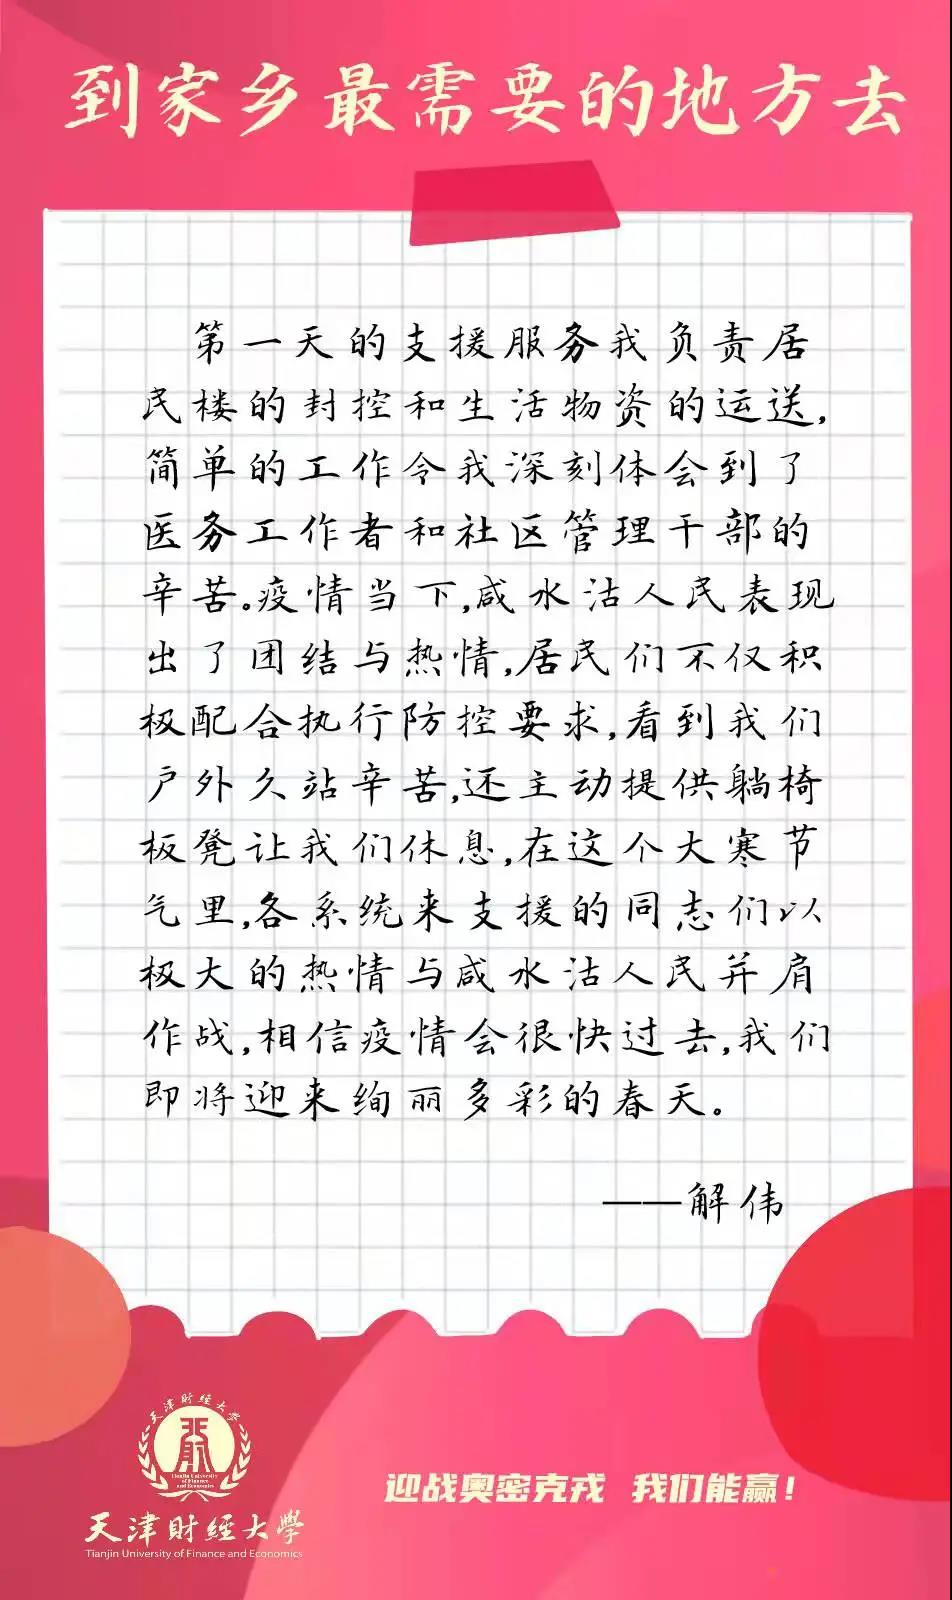 到家乡最需要的地方去
第一天的支援服务我负责居
民楼的封控和生活物资的运送,
简单的工作令我深刻体会到了
医务工作者和社区管理干部的
辛苦。疫情当下,咸水沽人民表现
出了团结与热情,居民们不仅积
极配合执行防控要求,看到我们
户外久站辛苦,还主动提供躺椅
板凳让我们休息,在这个大寒节
气里,各系统来支援的同志们以
极大的热情与咸水沽人民并肩
作战,相信疫情会很快过去,我们
即将迎来绚丽多彩的春天。
——解伟
天津财经大學
Tianjin University
of Finance
and Economics
天津财經大學
Tianjin University of Finance and Economics
迎战奥密克戎 我们能赢!